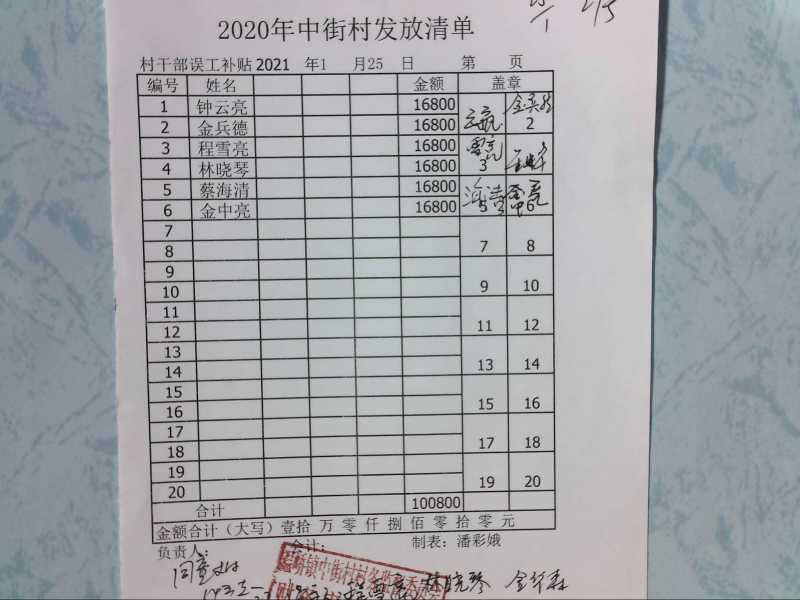 2020年中街村发放清单
村干部误工补贴 2021 年1 月25 日 第 页
编号 姓名 金额 盖章
1 钟云亮 16800
2 金兵德 16800 2
3 程雪亮 16800
4 林晓琴 16800 3
5 蔡海清 16800
6 金中亮 16800
7
8 7 8
9
10 9 10
11
12 11 12
13
14 13 14
15
16 15 16
17
18 17 18
19
20 19 20
合计 100800
金额合计（大写）壹拾 万 零 仟 捌 佰 零 拾 零 元
负责人： 会计： 制表：潘彩娥
同意 林晓琴